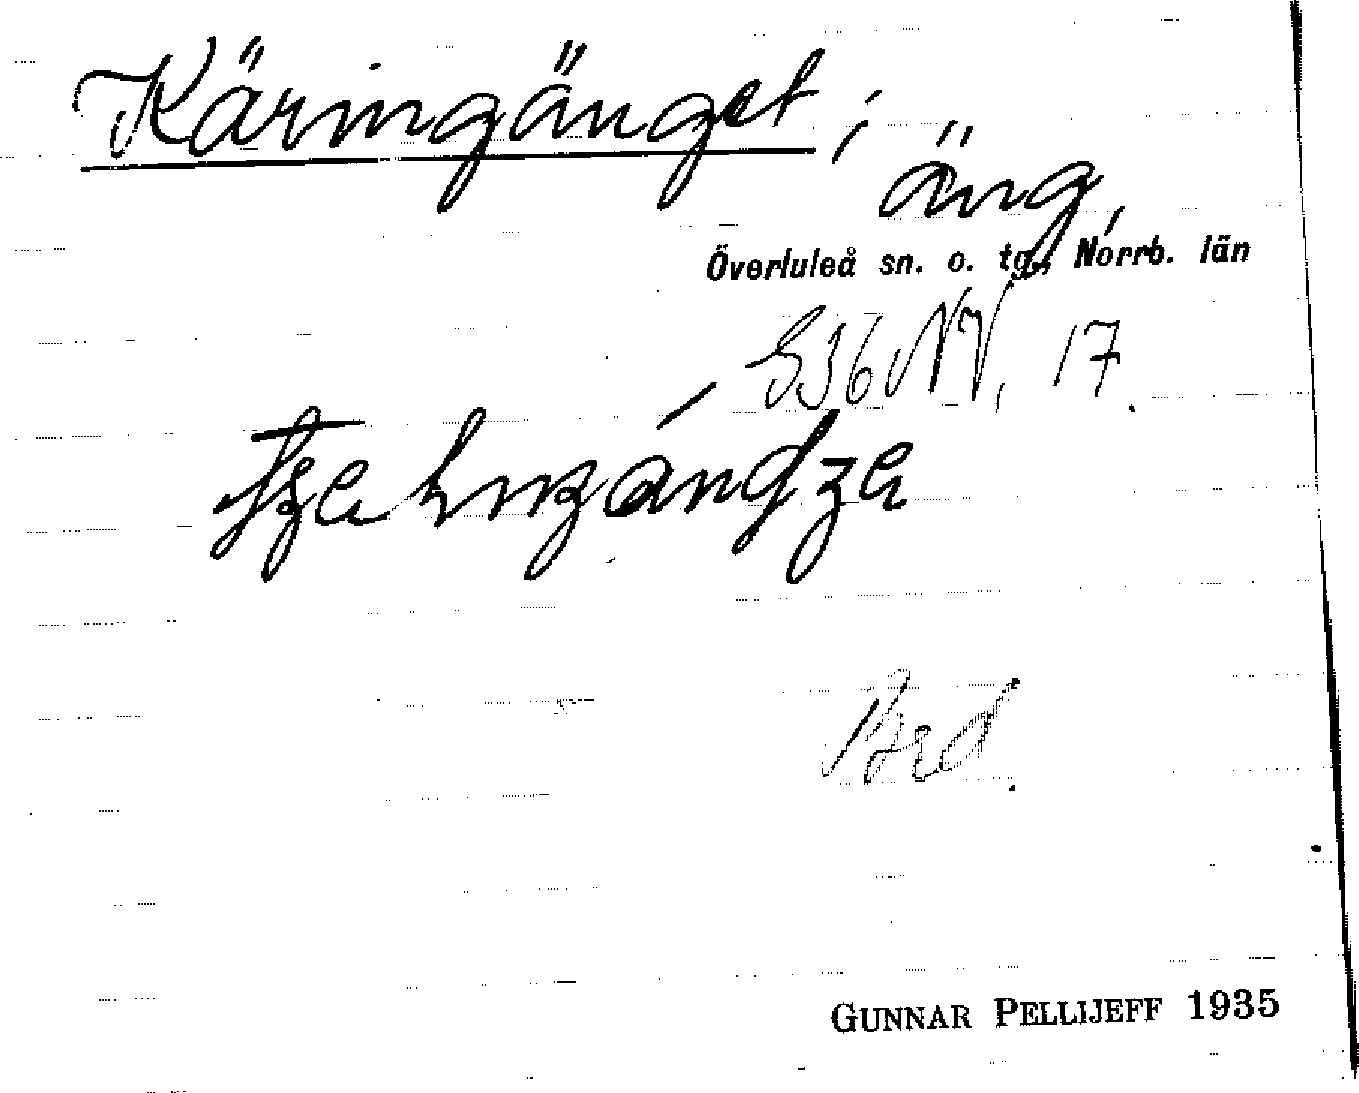 Käringänget;
äng,
Överluleå sn. o. tg., Norrb. län
S36NV, 17.
Bred.
GUNNAR PELLIJEFF 1935